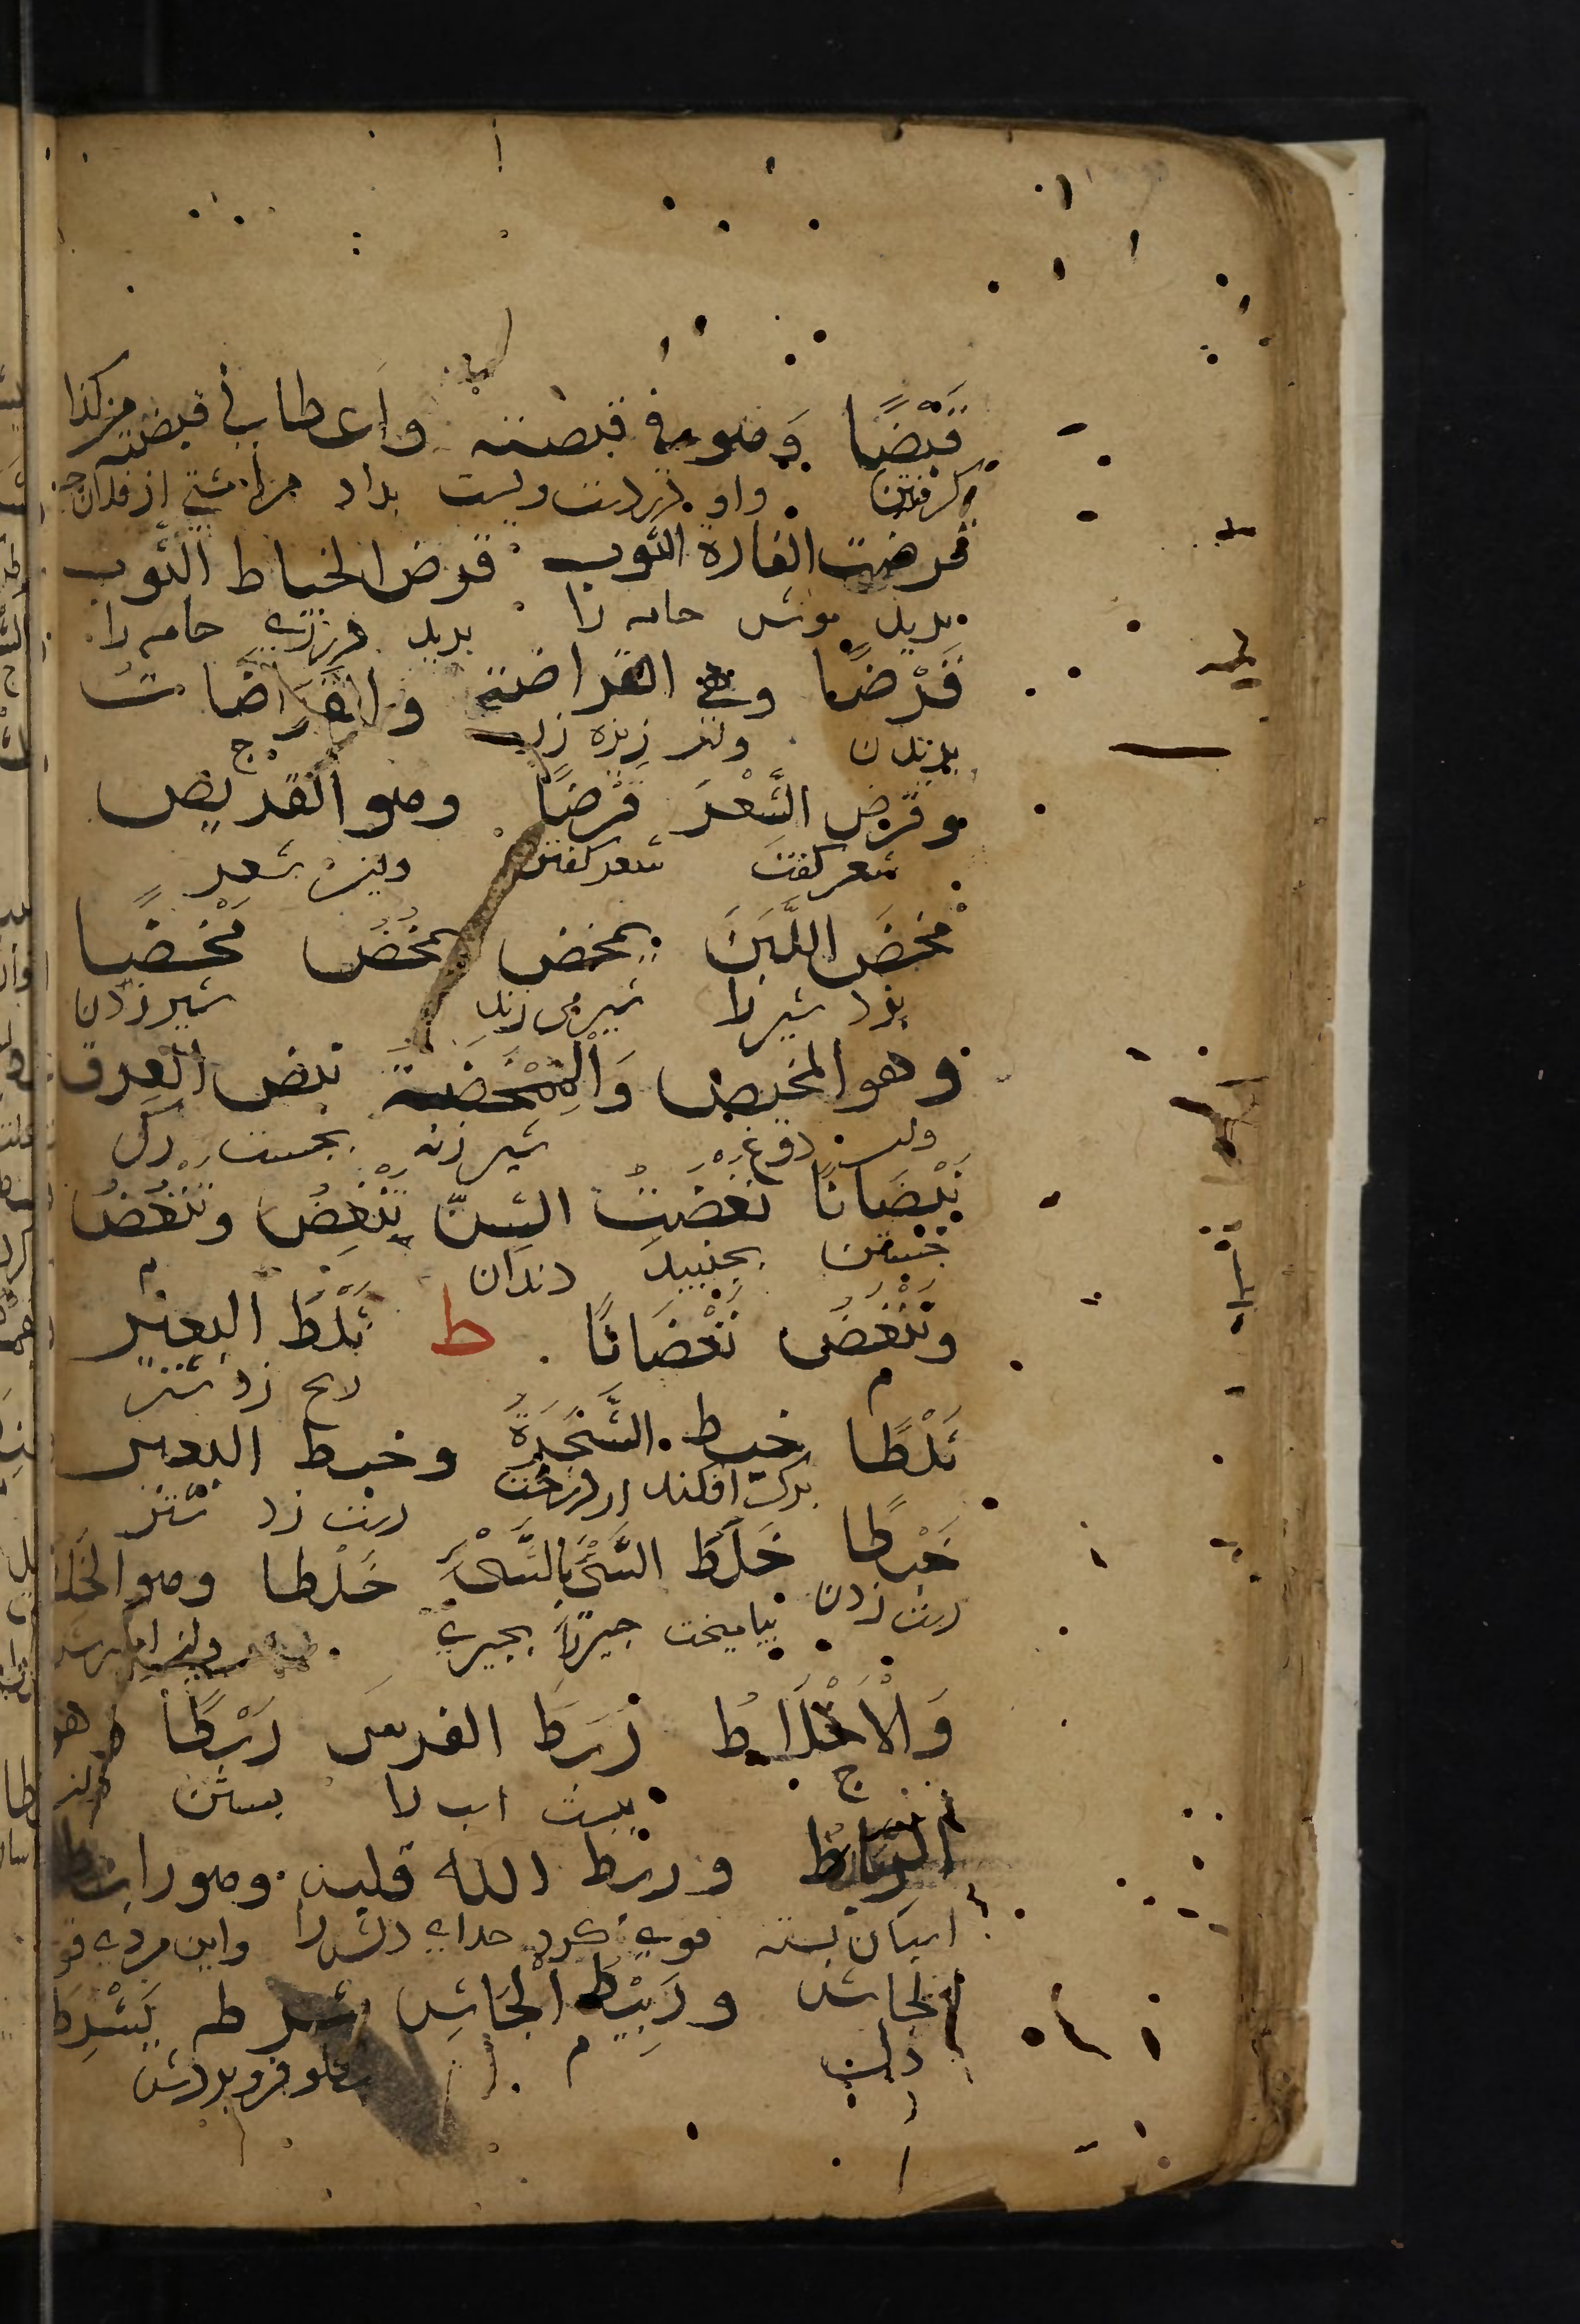 قَبْضًا وَهو في قبضته واعطاني قبضة من كذا
گرفتن واو در دست ویست بداد مرا مشتی از فلان چیز
قرضت الفارة الثوب قرض الخیاط الثوب
برید موش جامه را برید درزی جامه را
قَرْضًا وهي القراضة والقُرَاضَات
بریدن ریزه زر ج
وقرض الشِّعْرَ قَرْضًا وهو القریض
شعر گفت شعر گفتن واین شعر
مَخَضَ اللَّبَنَ یمخض یمخُضُ مَخْضًا
بزد شیر را شیر می زند شیر زدن
وهو المخیض وَالْمِمْخَضَة نبض العِرق
دوغ شیر زنه بجست رگ
نَبْضَانًا نَغَضَتْ السِّنّ تَنْغِضُ وتَنْغُضُ
جستن بجنبید دندان
وتَنْغَضُ نَغْضَانًا ط ثَلَطَ البعیر
م زد شتر
ثَلْطًا خبط الشَّجَرَةَ وخبط البعیر
م برگ افکند از درخت دست زد شتر
خَبْطًا خَلَطَ الشَّئَ بالشَّئِ خَلْطا وهو الخلط
دست زدن بیامیخت چیزرا بچیزی
وَالْاَخْلَاطُ رَبَطَ الفرس رَبْطًا وهو
ج ببست اسب را بستن
الرِّباطُ وربط الله قلبه وهو رابط
اسبان بسته قوی کرد خدای دلش را واین مردی قوی
الجاش ورَبِیْطُ الْجَاشِ شرطه یَشْرِطُ
دل م فرو بردش